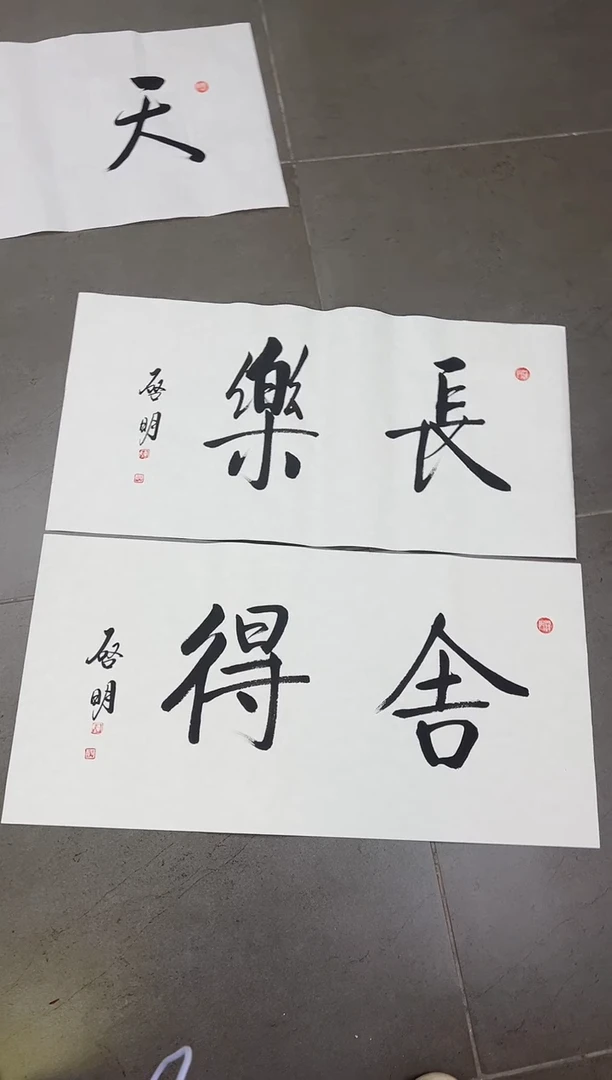 天
長樂
啓明
舍得
啓明